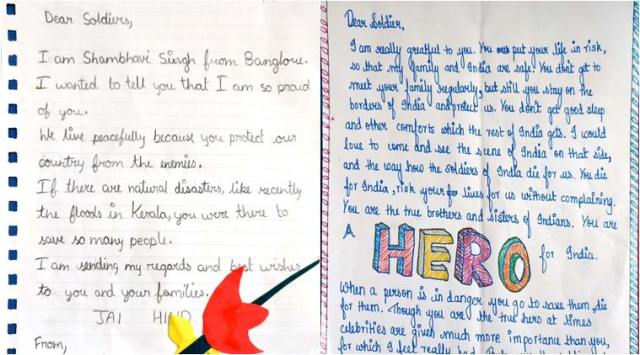 Dear Soldiers,
I am Shambhavi Singh from Banglore.
I wanted to tell you that I am so proud
of you.
We live peacefully because you protect our
country from the enemies.
If there are natural disasters, like recently
the floods in Kerala, you were there to
save so many people.
I am sending my regards and best wishes
to you and your families.
JAI HIND
From,
Dear Soldier,
I am really greatful to you. You put your life in risk,
so that my family and India are safe. You don't get to
meet your family regularly, but still you stay on the
borders of India and protect us. You don't get good sleep
and other comforts which the rest of India gets. I would
love to come and see the scene of India on that side,
and the way how the soldiers of India die for us. You die
for India, risk your lives for us without complaining.
You are the true brothers and sisters of Indians. You are
A HERO for India.
When a person is in danger you go to save them, die
for them. Though you are the true hero at times
celebrities are given much more importance than you,
for which I feel really